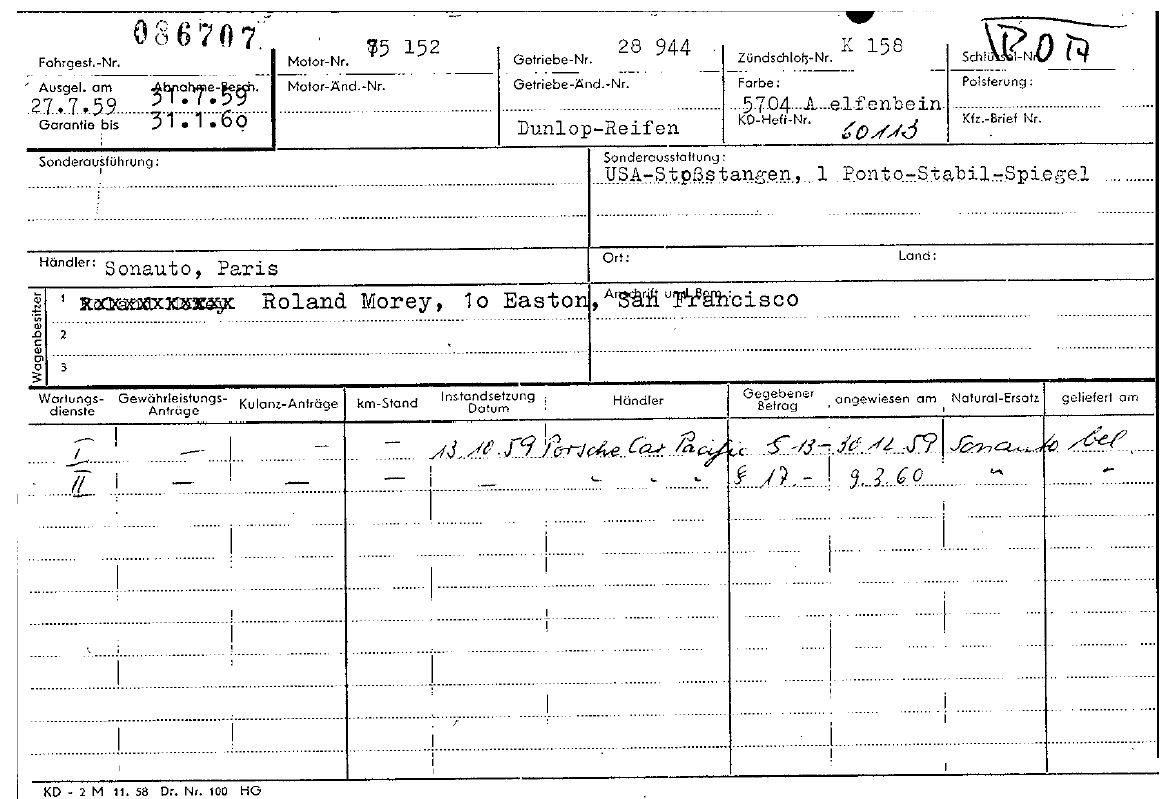 086707
Fahrgest.-Nr.
Motor-Nr. 75 152
Getriebe-Nr. 28 944
Zündschloß-Nr. K 158
Schlüssel-Nr.
Ausgel. am 27.7.59
Abnahme-Besch. 31.7.59
Garantie bis 31.1.60
Motor-Änd.-Nr.
Getriebe-Änd.-Nr.
Dunlop-Reifen
Farbe:
5704 A elfenbein
KD-Heft-Nr. 60113
Polsterung:
Kfz.-Brief Nr.
Sonderausführung:
Sonderausstattung:
USA-Stoßstangen, 1 Ponto-Stabil-Spiegel
Händler: Sonauto, Paris
Ort:
Land:
Wagenbesitzer
Anschrift und Bem.:
1 Roland Morey, 1o Easton, San Francisco
2
3
Wartungs-dienste Gewährleistungs-Anträge Kulanz-Anträge km-Stand Instandsetzung Datum Händler Gegebener Betrag angewiesen am Natural-Ersatz geliefert am
I — — — 13.10.59 Porsche Car Pacific 13- 30.12.59 Sonauto bel
II — — — — " " " $ 17.- 9.3.60 " "
KD - 2 M 11. 58 Dr. Nr. 100 HG